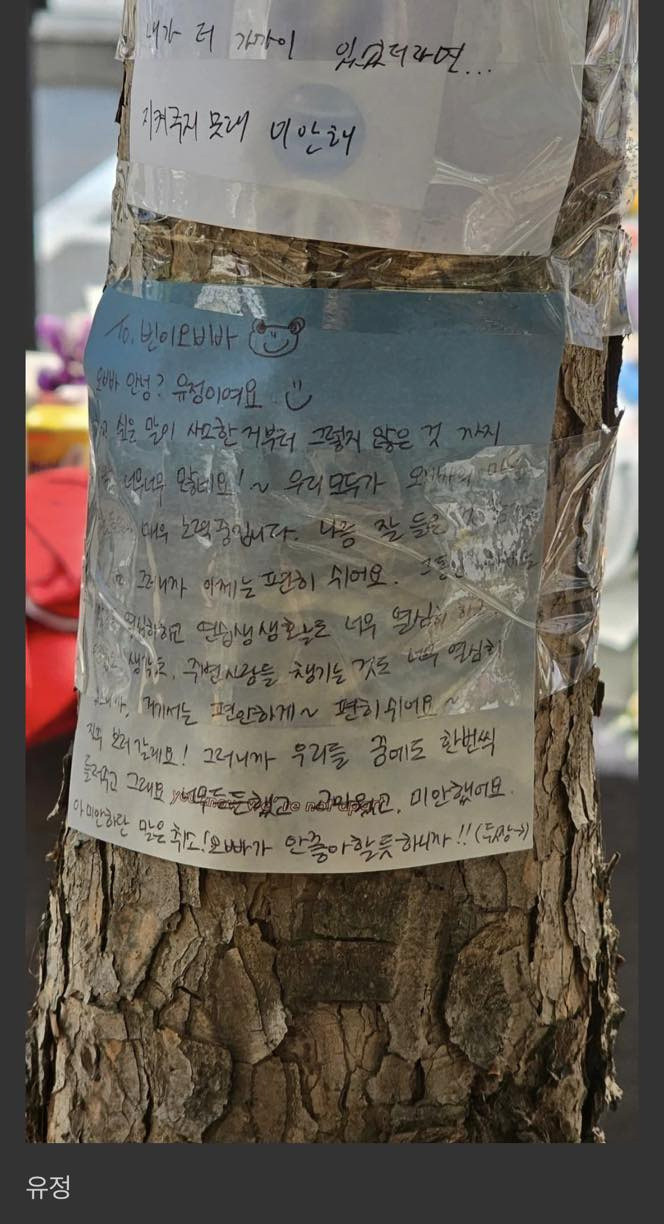 내가 더 가까이 있었더라면...
지켜주지 못해 미안해
To. 빈이오빠
오빠 안녕? 유정이여요
싶은 말이 사소한거부터 그렇지 않은 것 까지
너무너무 많네요!~ 우리모두가
매우 노력중입니다. 나름 잘 들은
그러니까 이제는 편히 쉬어요.
연습생 생활도 너무 열심히 하고
생각도, 주변사람들 챙기는 것도 너무 열심히
거기서는 편안하게~ 편히쉬어요~
자주 보러갈게요! 그러니까 우리들 꿈에도 한번씩
들러주고 그래요 너무든든했고 고마웠고, 미안했어요.
아 미안하단 말은 취소! 오빠가 안좋아할듯하니까!! (뒷장→)
유정